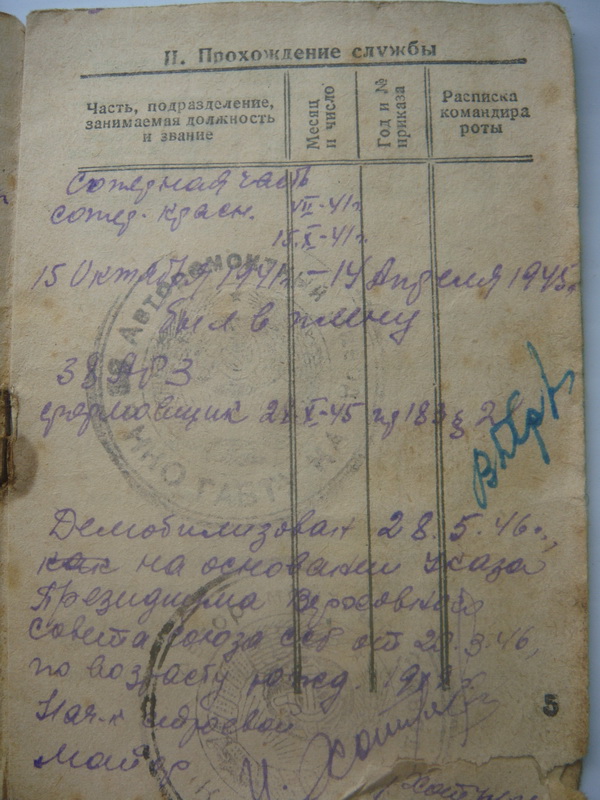 II. Прохождение службы
Часть, подразделение, занимаемая должность и звание
Месяц и число
Год и № приказа
Расписка командира роты
часть
красн. VII-41г.
15.X-41г.
15 Октября 1941г. - 14 Апреля 1945г.
был в плену
38 АРЗ
XI-45
Демобилизован 28.5.46г.,
как на основании Указа
Президиума Верховного
Совета Союза ССР от 20.3.46,
по возрасту рожд.
Нач-к строевой
Майор
Авторемонтный
ГАБТУ КА
5